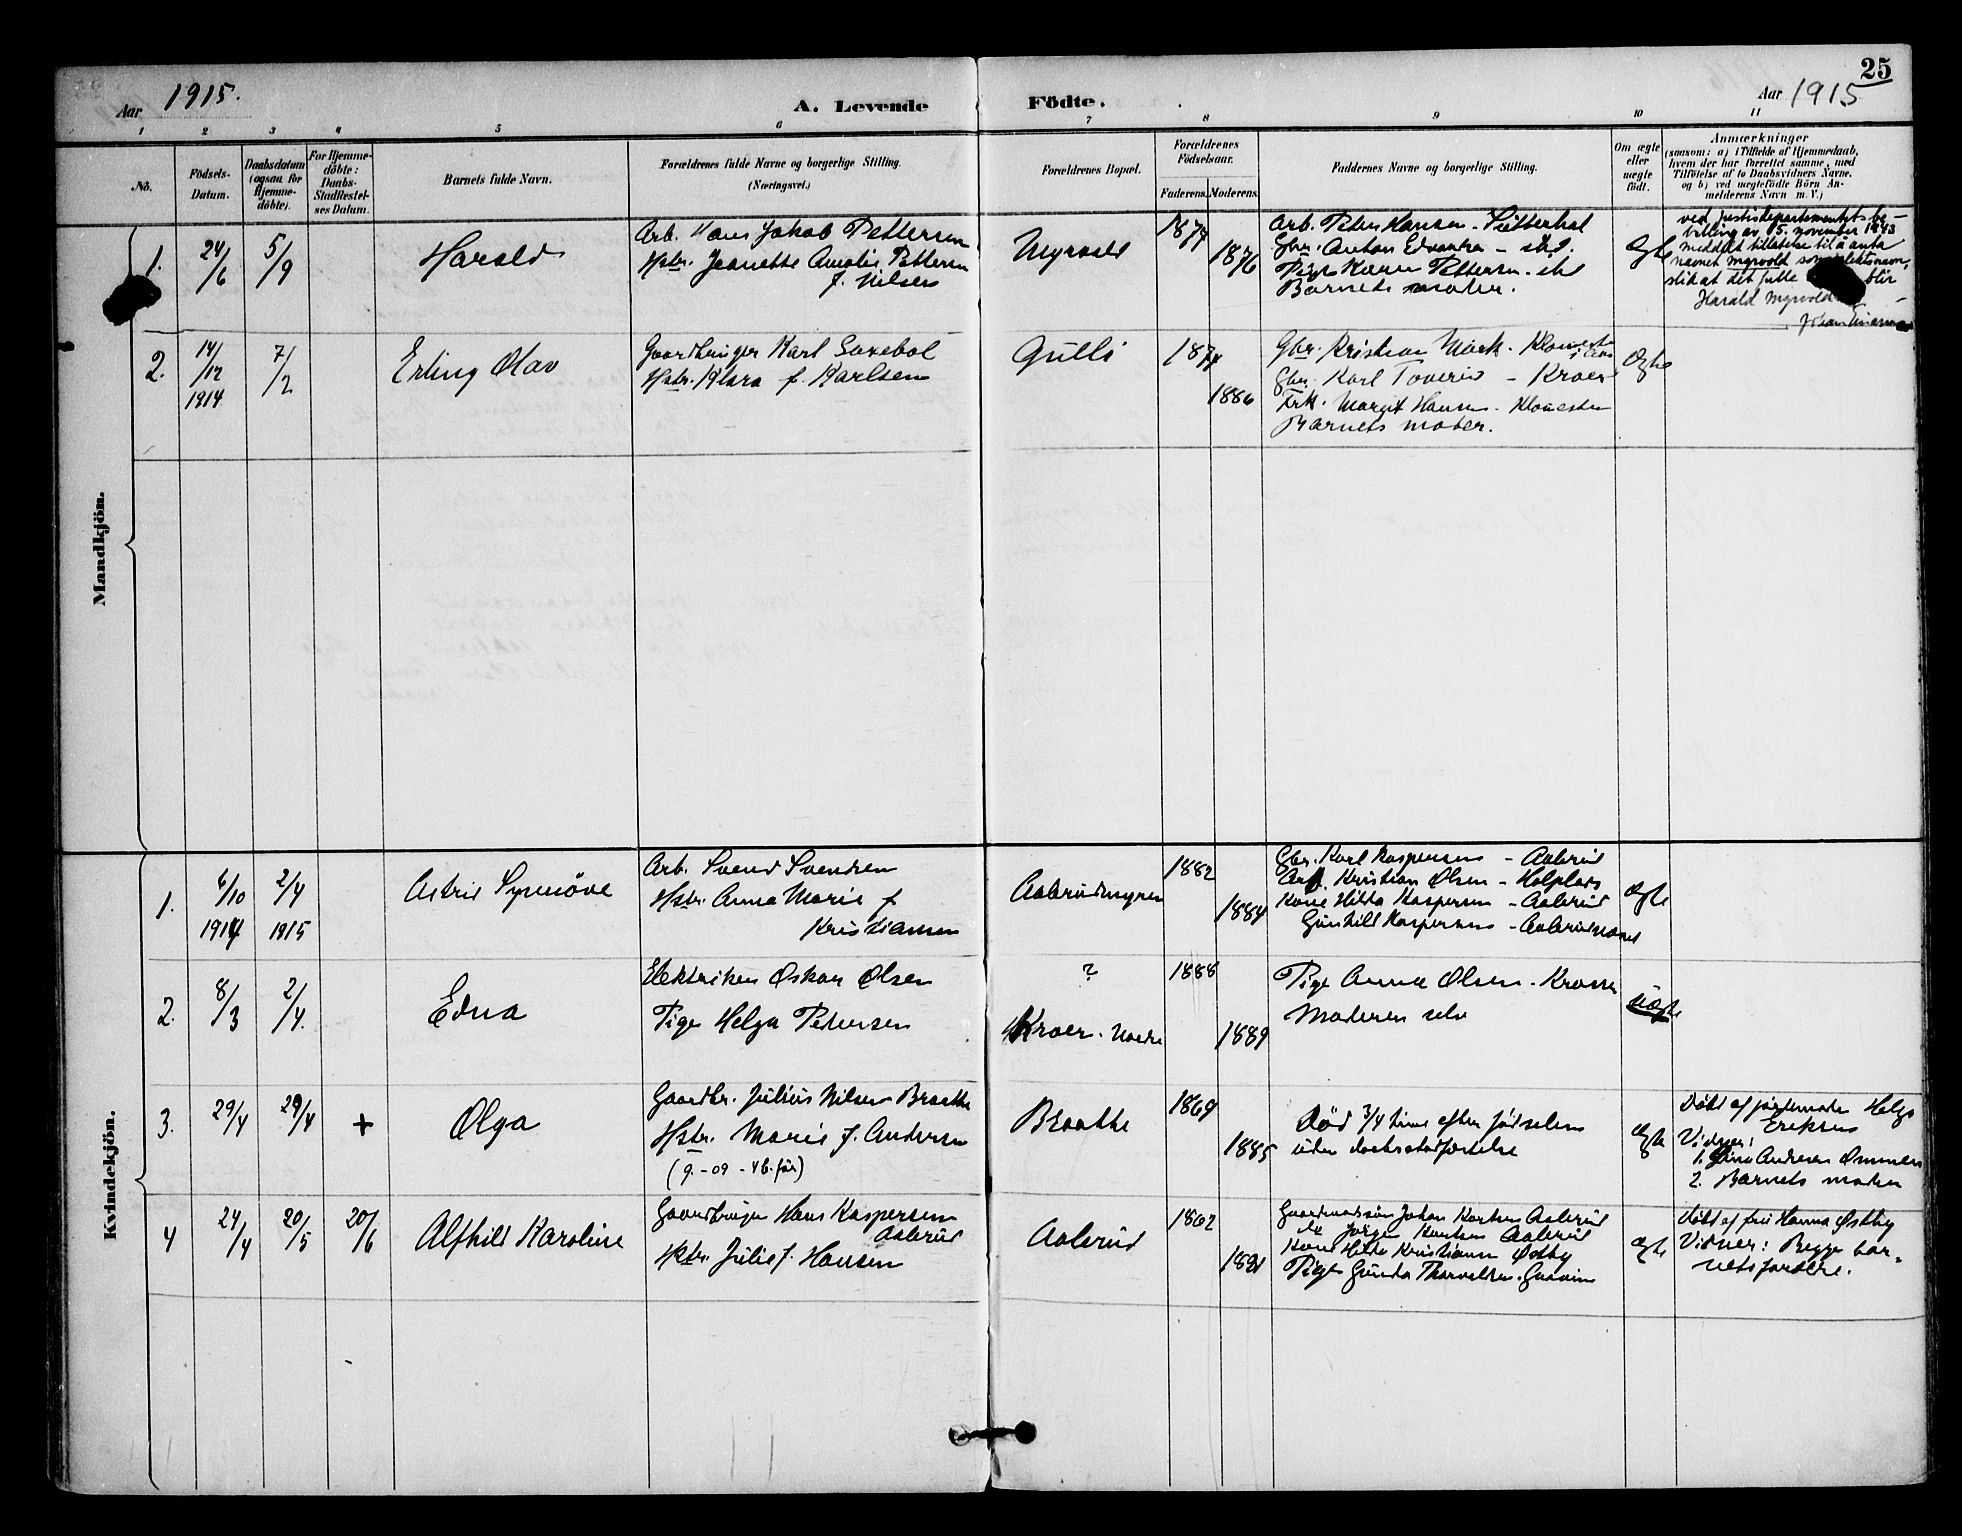 25
Aar 1915.
A. Levende Födte.
Aar 1915
1 2 3 4 5 6 7 8 9 10 11
No.
Födsels-Datum.
Daabsdatum (ogsaa for Hjemme-döbte).
For Hjemme-döbte: Daabs-Stadfæstel-ses Datum.
Barnets fulde Navn.
Forældrenes fulde Navne og borgerlige Stilling. (Næringsvei.)
Forældrenes Bopæl.
Forældrenes Födselsaar.
Faderens. Moderens.
Faddernes Navne og borgerlige Stilling.
Om ægte eller uægte födt.
Anmærkninger
(saasom: a) i Tilfælde af Hjemmedaab, hvem der har forrettet samme, med Tilföielse af to Daabsvidners Navne. og b) ved uægtefödte Börn An-melderens Navn m. V.)
Mandkjön.
1. 24/6 5/9 Harald
Arb. Hans Jakob Pettersen
Hstr. Jeanette Amalie Pettersen
f. Nilsen
Myrvold
1877
1876
Arb. Peter Hansen -
Gbr. Anton - sted.
Pige Karen Pettersen - sted
Barnets moder.
Ægte
ved justisdepartementets be-
villing av 15. november 1943
meddelt tillatelse til å anta
navnet Myrvold som slektsnavn,
slik at det fulde blir
Harald Myrvold
2. 14/12 1914 7/2 Erling Olav
Gaardbruger Karl Saxebøl
Hstr. Klara f. Karlsen
Gulli
1874
1886
Gbr. Kristian Mørk -
Gbr. Karl Toverud - Kroer
Frk. Margit Hansen -
Barnets moder.
Ægte
Kvindekjön.
1. 6/10 1914 2/4 1915 Astrid Synnöve
Arb. Svend Svendsen
Hstr. Anna Marie f
Kristiansen
Aalerudmyren
1882
1884
Gbr. Karl Kaspersen - Aalerud
Arb. Kristian Olsen - Holplads
Kone Hilda Kaspersen - Aalerud
Gunhild Kaspersen -
Ægte
2. 8/3 2/4. Edna
Elektriker Oskar Olsen
Pige Helga Petersen
?
Kroer. Nordre
1888
1889
Pige Anna Olsen - Kroer
Moderen selv
Uægte
3. 29/4 29/4 + Olga
Gaardbr. Julius Nilsen Braathe
Hstr. Marie f. Andersen
(9.-09 - 4 b. för)
Braathe
1869
1885
Død 3/4 time efter fødselen
uden daabsstadfestelse
Ægte
Døbt af jordemoder Helga
Eriksen
Vidner:
1. Andersen
2. Barnets moder
4 24/4 20/5 20/6 Alfhild Karoline
Gaardbruger Hans Kaspersen
Aalerud
Hstr. Julie f. Hansen
Aalerud
1862
1881
Gaardmandssøn Johan Karlsen Aalerud
do Jørgen Karlsen Aalerud
Kone Hilda Kristiansen Østby
Pige Gunda Thorvaldsen.
Ægte
Døbt af fru Hanna Østby
Vidner: Begge bar-
nets forældre.